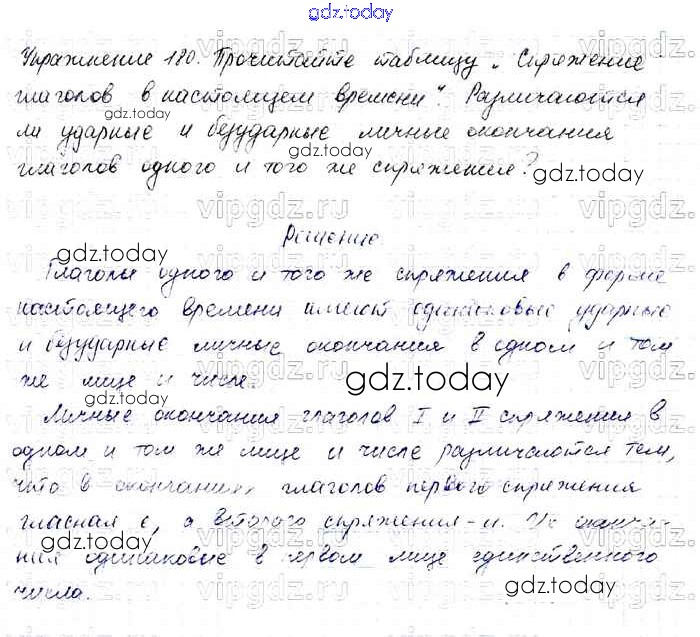 gdz.today
Упражнение 180. Прочитайте таблицу „Спряжение
глаголов в настоящем времени“. Различаются
gdz.today
ли ударные и безударные личные окончания
gdz.today
глаголов одного и того же спряжения?
gdz.today
Решение.
gdz.today
Глаголы одного и того же спряжения в форме
настоящего времени имеют одинаковые ударные
и безударные личные окончания в одном и том
же лице и числе.
gdz.today
Личные окончания глаголов I и II спряжения в
одном и том же лице и числе различаются тем,
что в окончаниях глаголов первого спряжения
гласная е, а второго спряжения - и. Но оконча-
gdz.today
ния одинаковые в первом лице единственного
числа.
gdz.today